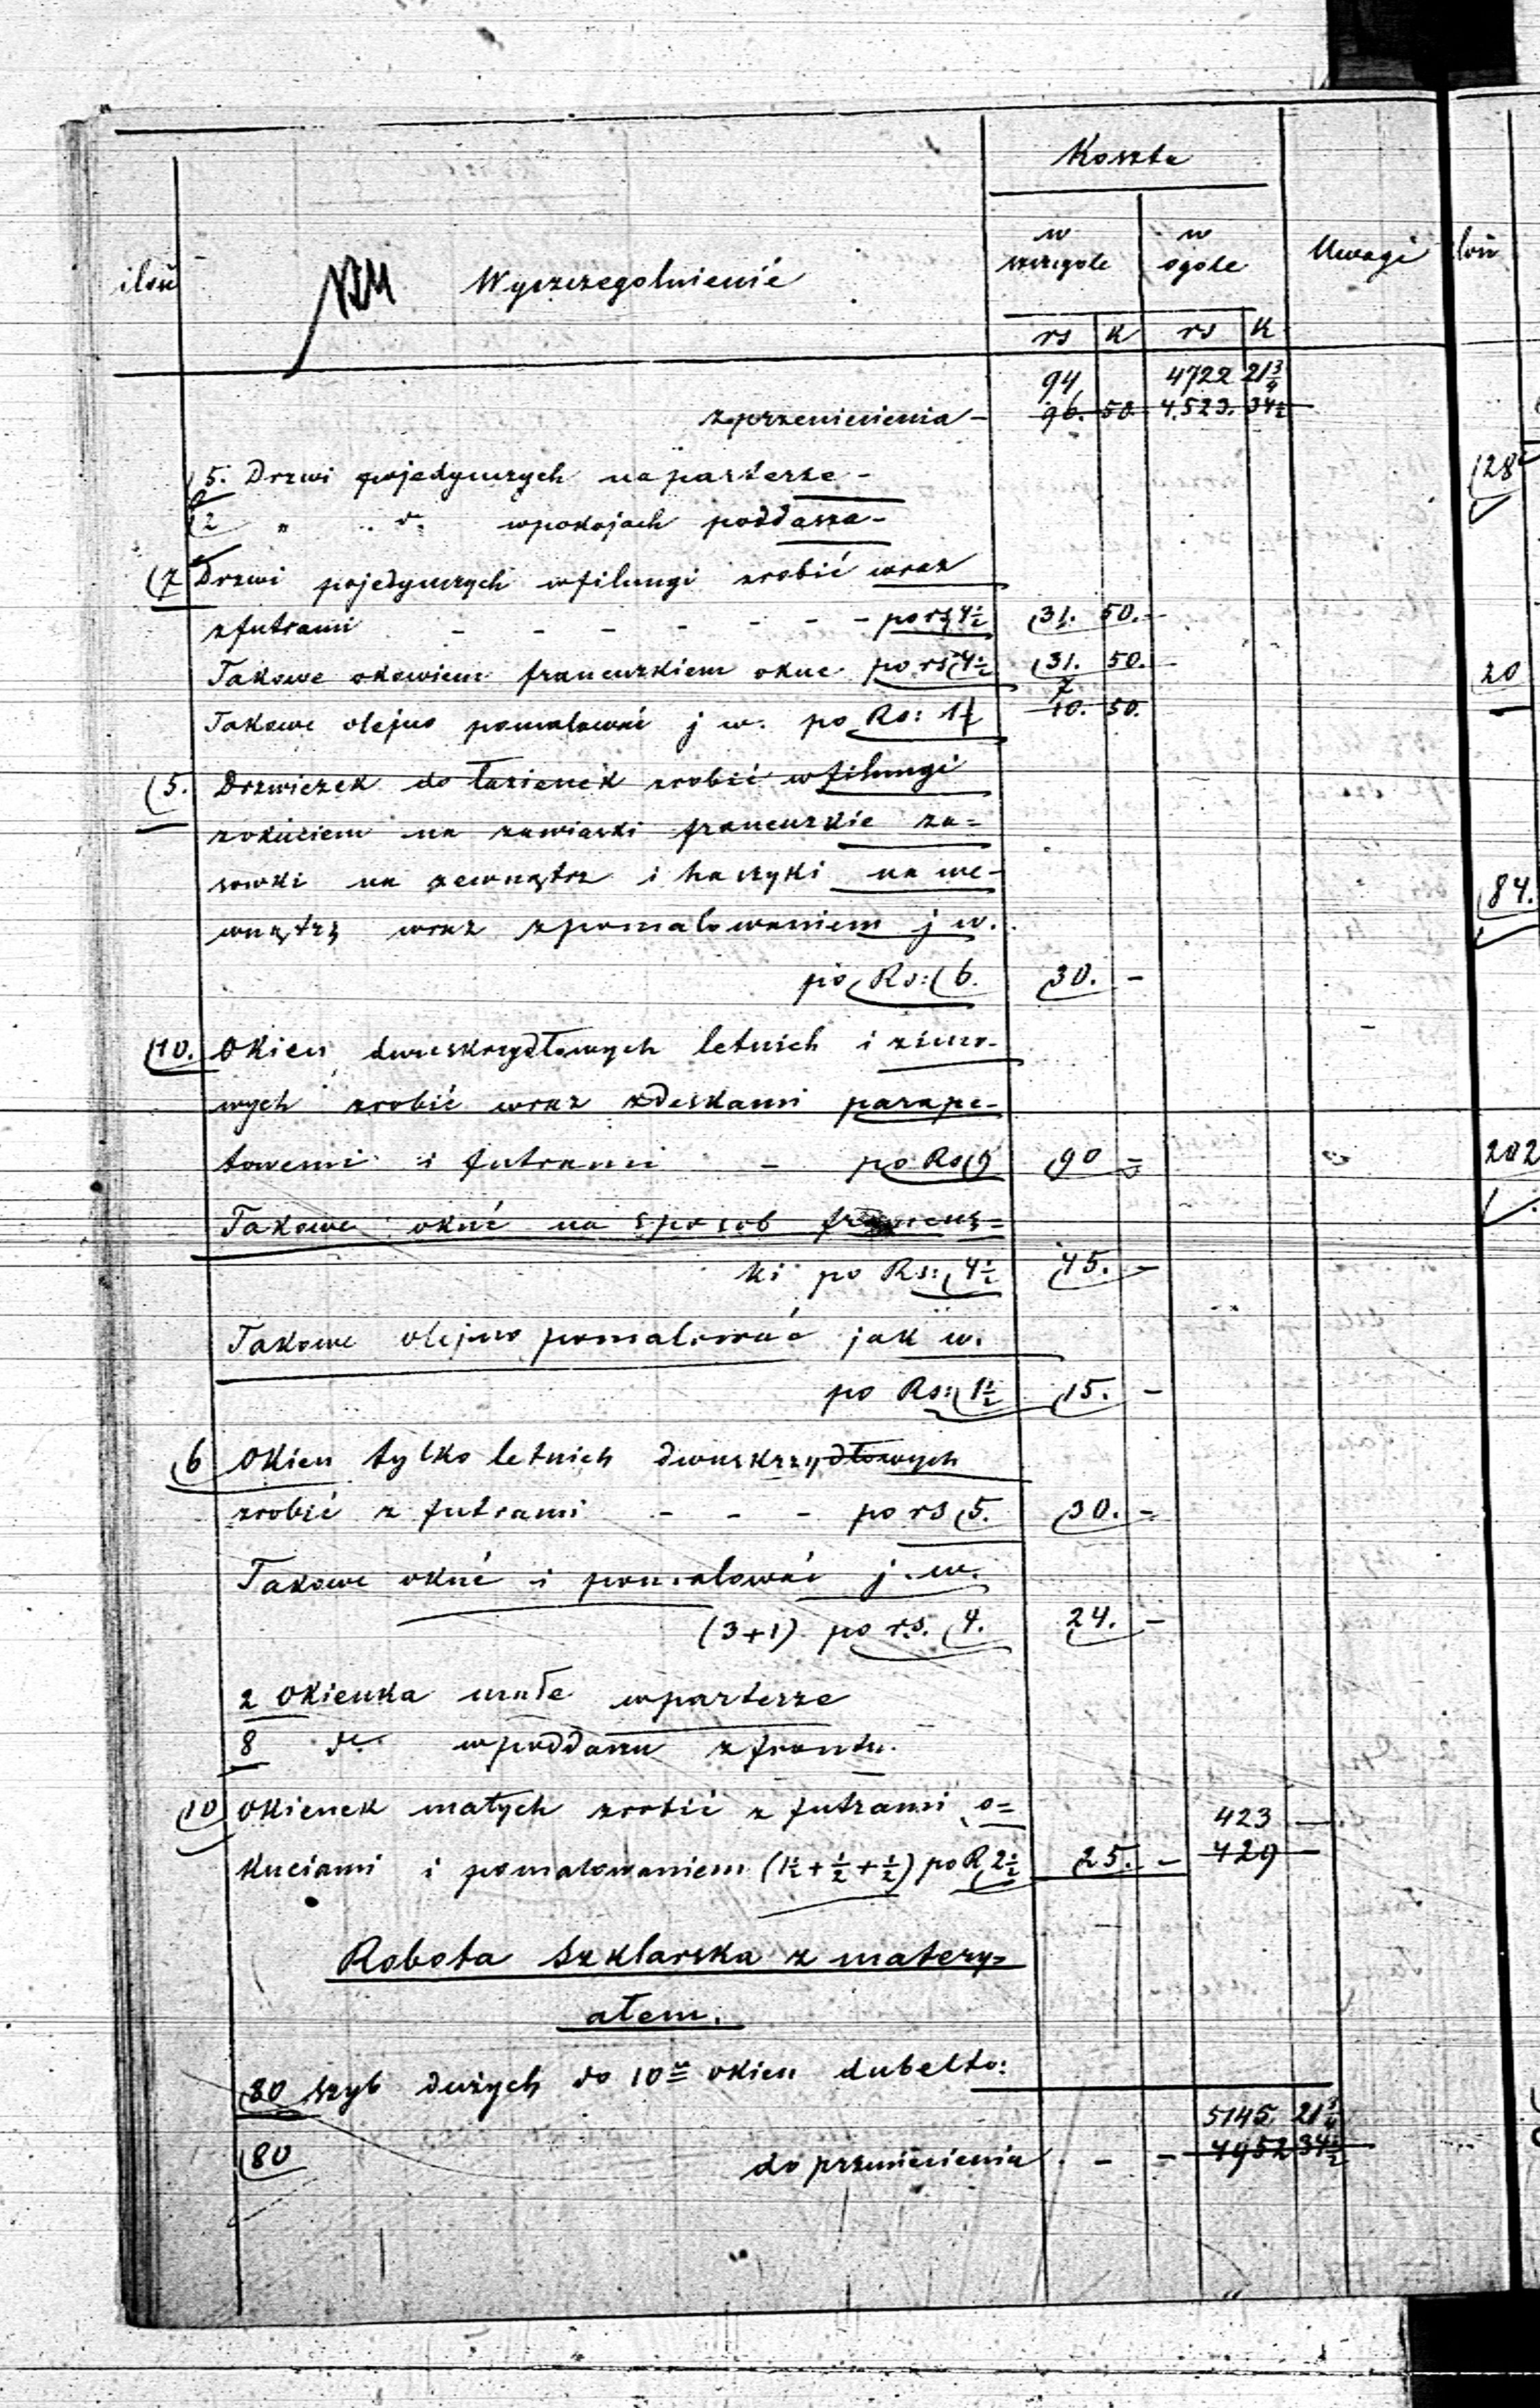 Koszta
ilość Wyszczegolnienié w szczegole w ogole Uwagi
rs k rs k
94 4722 21 3/4
z przeniesienia – 96. 50 4.523. 34 1/2
5. Drzwi pojedynczych na parterze –
2 " .. do wpokojach poddasza –
7 Drzwi pojedynczych wfilungi zrobić wraz
zfutrami – – – – – – – po rs 4 1/2 31. 50. –
Takowe okowiem francuzkiem okuc po rs 4 1/2 31. 50. –
7
Takowe olejno pomalować j w. po Rs: 1 10. 50.
5. Drzwiczek do łazienek zrobić wfilungi
zokuciem na zawiaski francuzkie za=
sowki na zewnątrz i haczyki na we-
wnątrz wraz zpomalowaniem j w.
po Rs: 6. 30. –
10. Okien dwuskrzydłowych letnich i zimo-
wych zrobić wraz zdeskami parape-
towemi i futrami – po Rs 9 90 =
Takowe okuć na sposob francuz=
ki po Rs: 4 1/2 45. –
Takowe olejno pomalować jak w.
po Rs: 1 1/2 15. –
6 Okien tylko letnich dwuskrzydłowych
zrobić z futrami – – – po rs 5. 30. =
Takowe okuć i pomalować j. w.
(3+1) po rs. 4. 24. –
2 Okienka małe wparterze
8 do wpoddaszu zfrontu.
10 Okienek małych zrobić z futrami o= 423 –
kuciami i pomalowaniem (1 1/2 + 1/2 + 1/2) po R 2 1/2 25. – 429 –
Robota Szklarska z matery=
ałem.
80 szyb dużych do 10u okien dubelto:
5145. 21 3/4
80 do przeniesienia . – – 4952 34 1/2
lość
28
20
84.
202